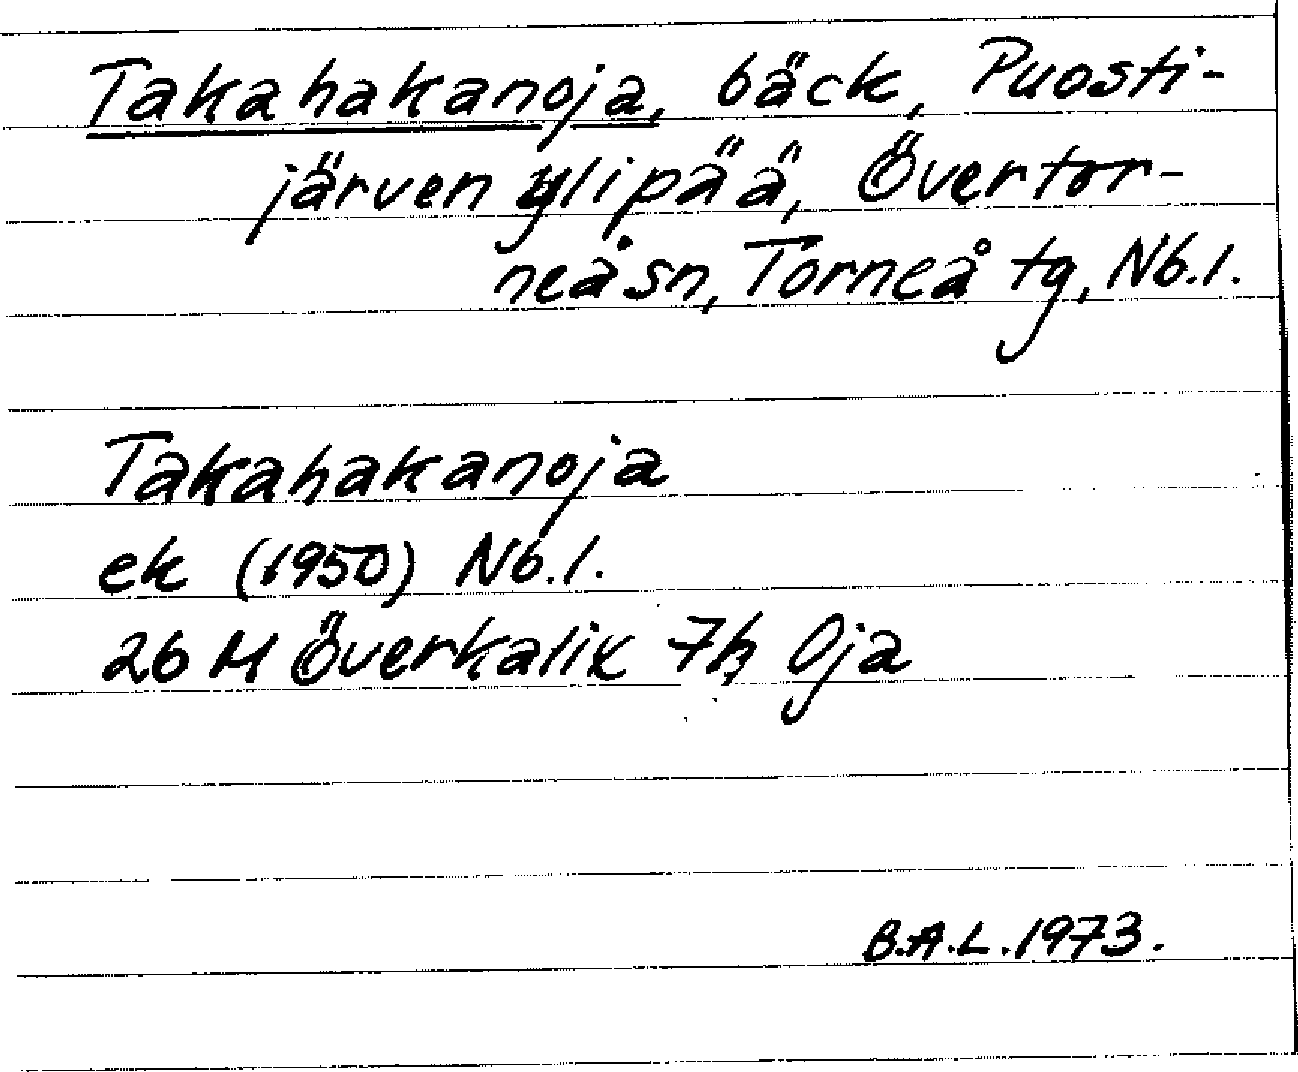 Takahakanoja, bäck, Puosti-
järven ylipää, Övertor-
neå sn, Torneå tg, Nb.l.
Takahakanoja
ek (1950) Nb.l.
26 M Överkalix 7h, Oja
B.A.L. 1973.